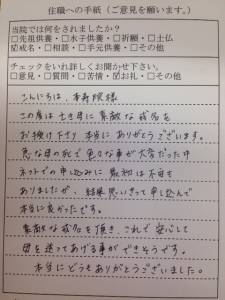 住職への手紙(ご意見を願います。)
当院では何をされましたか?
□先祖供養・□水子供養・□祈願・□土仏
☑戒名・□相談・□手元供養・□その他
チェックをいれ詳しくお聞かせ下さい。
□意見・□質問・□苦情・☑お礼・□その他
こんにちは、本寿院様
この度は亡き母に素敵な戒名を
お授け下さり本当にありがとうございます。
急な母の死で色々な事が大変だった中
ネットでの申し込みに最初は不安も
ありましたが、結果思いきって申し込んで
本当に良かったです。
素敵な戒名を頂き、これで安心して
母を送ってあげる事ができそうです。
本当にどうもありがとうございました。